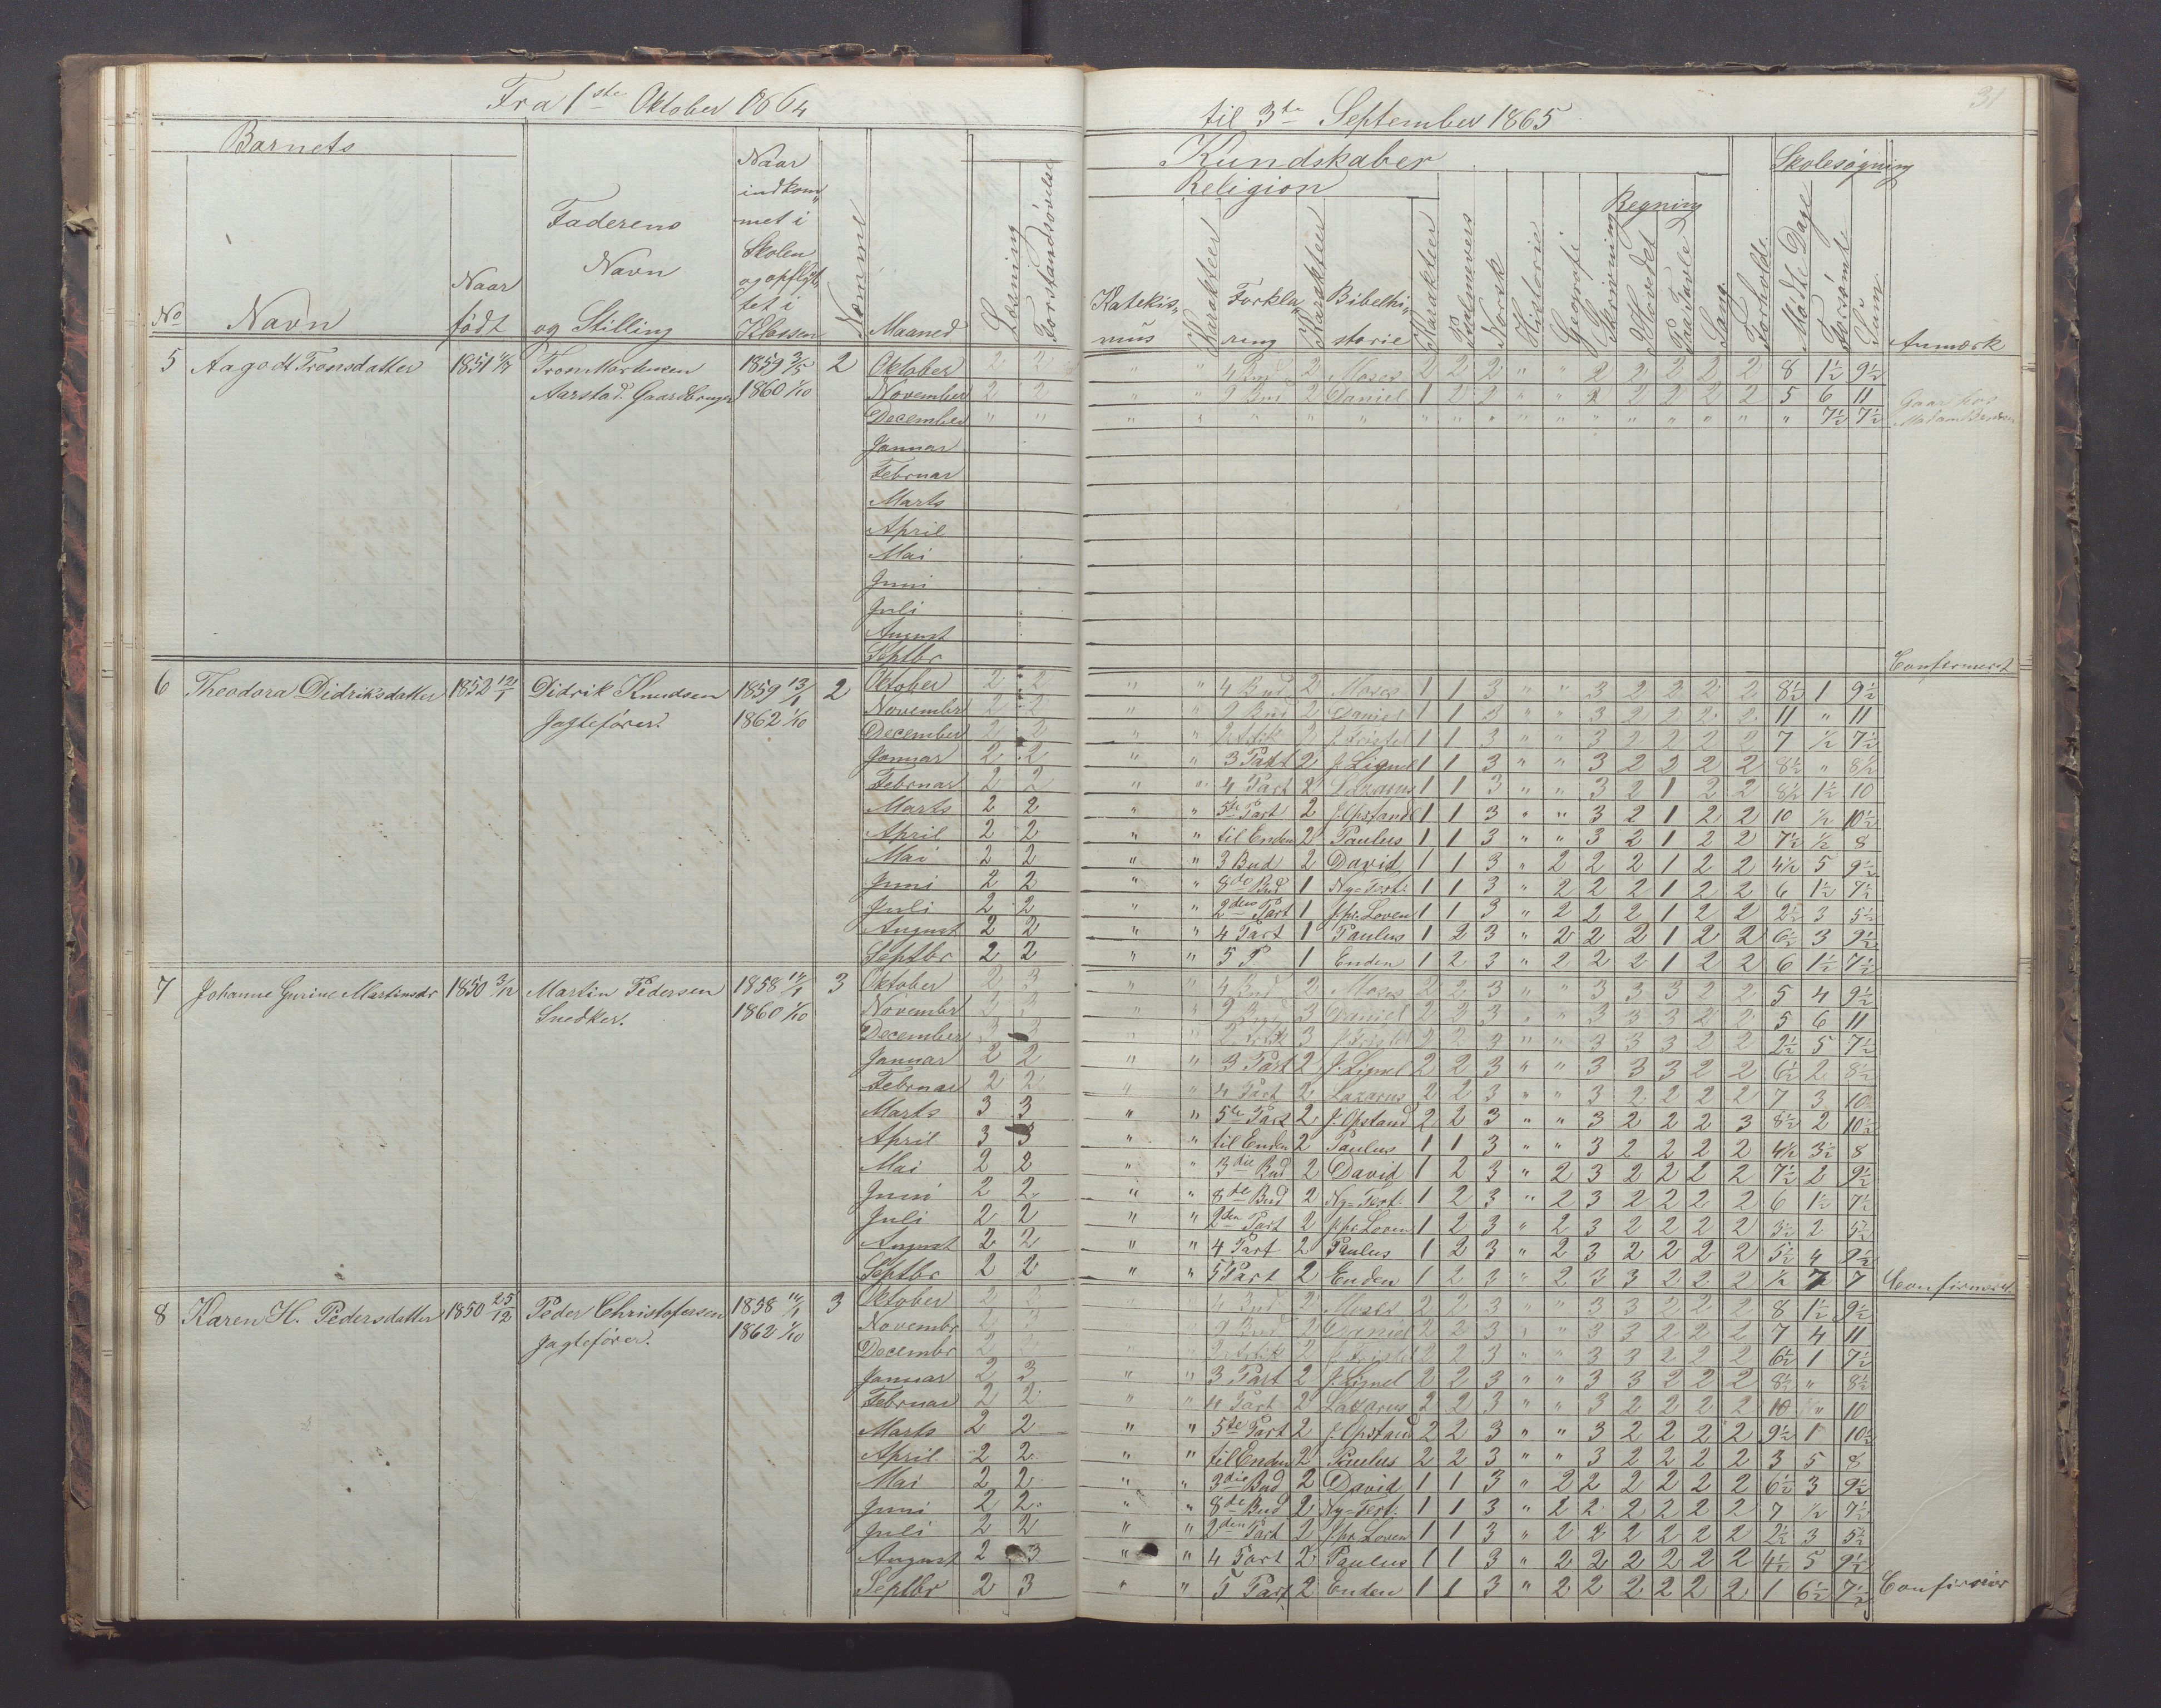 Fra 1ste Oktober 1864 til 3te September 1865
31
Barnets
Kundskaber
Skolesøgning
Religion
Regning
No Navn Naar født Faderens Navn og Stilling Naar indkommet i Skolen og opflyttet i Klassen Nummer Maaned Læsning Forstandsøvelse Katekismus Karakteer Forklaring Karakteer Bibelhistorie Karakteer Psalmevers Norsk Historie Geografi Skrivning I Hovedet Paa Tavle Sang Forholdt Mødte Dage Forsømte Sum Anmærk
5 Aagodt Tronsdatter 1851 1859 2/5 2 Oktober 2 2 " " 4 Bud 2 Moses 2 2 2 " " 2 2 2 2 2 8 1½ 9½
Aarstad. Gaardbruger 1860 1/10 November 2 2 " " 9 Bud 2 Daniel 1 2 2 " " 2 2 2 2 2 5 6 11
December " " " " " " " " " " " " " " " " " " 7½ 7½
Januar
Februar
Marts
April
Mai
Juni
Juli
August
Septbr Confirmert
6 Theodora Didriksdatter 1852 12/1 Didrik Knudsen 1859 13/1 2 Oktober 2 2 " " 4 Bud 2 Moses 1 1 3 " " 3 2 2 2 2 8½ 1 9½
Jagtefører. 1862 1/10 Novembr 2 2 " " 9 Bud 2 Daniel 1 1 3 " " 3 2 2 2 2 11 " 11
December 2 2 " " 2 Artik 2 J. Fristel 1 1 3 " " 3 2 2 2 2 7 ½ 7½
Januar 2 2 " " 3 Part 2 J. Lignel 1 1 3 " " 3 2 2 2 2 8½ " 8½
Februar 2 2 " " 4 Part 2 Lazarus 1 1 3 " " 3 2 1 2 2 8½ 1½ 10
Marts 2 2 " " 5te Part 2 J. Opstand 1 1 3 " " 3 2 1 2 2 10 ½ 10½
April 2 2 " " til Enden 2 Paulus 1 1 3 " " 3 2 1 2 2 7½ ½ 8
Mai 2 2 " " 3 Bud 2 David 1 1 3 " 2 2 2 1 2 2 4½ 5 9½
Juni 2 2 " " 8de Bud 1 Ny=Test: 1 1 3 " 2 2 2 1 2 2 6 1½ 7½
Juli 2 2 " " 2den Part 1 J. pr. Loven 1 1 3 " 2 2 2 1 2 2 2½ 3 5½
August 2 2 " " 4 Part 1 Paulus 1 2 3 " 2 2 2 1 2 2 6½ 3 9½
Septbr 2 2 " " 5 P 1 Enden 1 2 3 " 2 2 2 1 2 2 6 1½ 7½
7 Johanne Gurine Martinsdr 1850 3/12 Martin Pedersen 1858 3 Oktober 2 3 " " 4 Bud 2 Moses 2 2 3 " " 3 3 3 2 2 5 4 9½
Snedker. 1860 1/10 Novembr 3 3 " " 9 Bud 3 Daniel 2 3 3 " " 3 3 3 2 2 5 6 11
December 3 3 " " 2 Artik 3 J. Fristel 2 2 3 " " 3 3 3 2 2 2½ 5 7½
Januar 2 2 " " 3 Part 2 J. Lignel 2 2 3 " " 3 3 3 2 2 6½ 2 8½
Februar 2 2 " " 4 Part 2 Lazarus 2 2 3 " " 3 2 2 2 2 7 3 10
Marts 3 3 " " 5te Part 2 J. Opstand 2 2 3 " " 3 2 2 2 3 8½ 2 10½
April 3 3 " " til Enden 2 Paulus 1 1 3 " " 3 2 2 2 2 4½ 3½ 8
Mai 2 2 " " 3die Bud 2 David 1 2 3 " 2 3 2 2 2 2 7½ 2 9½
Juni 2 2 " " 8de Bud 2 Ny=Test: 1 2 3 " 2 3 2 2 2 2 6 1½ 7½
Juli 2 2 " " 2den Part 2 J. pr. Loven 1 2 3 " 2 3 2 2 2 2 3½ 2 5½
August 2 2 " " 4 Part 2 Paulus 1 2 3 " 2 3 2 2 2 2 5½ 4 9½
Septbr 2 2 " " 5 Part 2 Enden 1 2 3 " 2 3 3 2 2 2 ½ 7 7 Confirmert
8 Karen H. Pedersdatter 1850 25/12 Peder Christofersen 1858 3 Oktober 2 2 4 Bud 2 Moses 2 2 3 " " 3 3 2 2 2 8 1½ 9½
Jagtefører. 1862 1/10 Novembr 2 9 Bud 2 Daniel 2 2 3 " " 3 3 2 2 2 7 4 11
Decembr 2 2 Artik 2 J. Fristel 2 2 3 " " 3 3 2 2 2 6½ 1 7½
Januar 2 3 " " 3 Part 2 J. Lignel 2 2 3 " " 3 3 2 2 2 8½ " 8½
Februar 2 2 " " 4 Part 2 Lazarus 2 2 3 " " 3 2 2 2 2 10 " 10
Marts 2 2 " " 5te Part 2 J. Opstand 2 2 3 " " 3 2 2 2 2 9½ 1 10½
April 2 2 " " til Enden 2 Paulus 2 2 3 " " 3 2 2 2 2 3 5 8
Mai 2 2 " " 3die Bud 2 David 1 1 3 " 2 2 2 2 2 2 6½ 3 9½
Juni 2 2 " " 8de Bud 2 Ny=Test: 1 1 3 " 2 2 2 2 2 2 7 ½ 7½
Juli 2 2 " " 2den Part 2 J. pr. Loven 1 1 3 " 2 2 2 2 2 2 2½ 3 5½
August 2 3 " " 4 Part 2 Paulus 1 1 3 " 2 2 2 2 2 2 4½ 5 9½
Septbr 2 3 " " 5 Part 2 Enden 1 1 3 " 2 2 2 2 2 2 1 6½ 7½